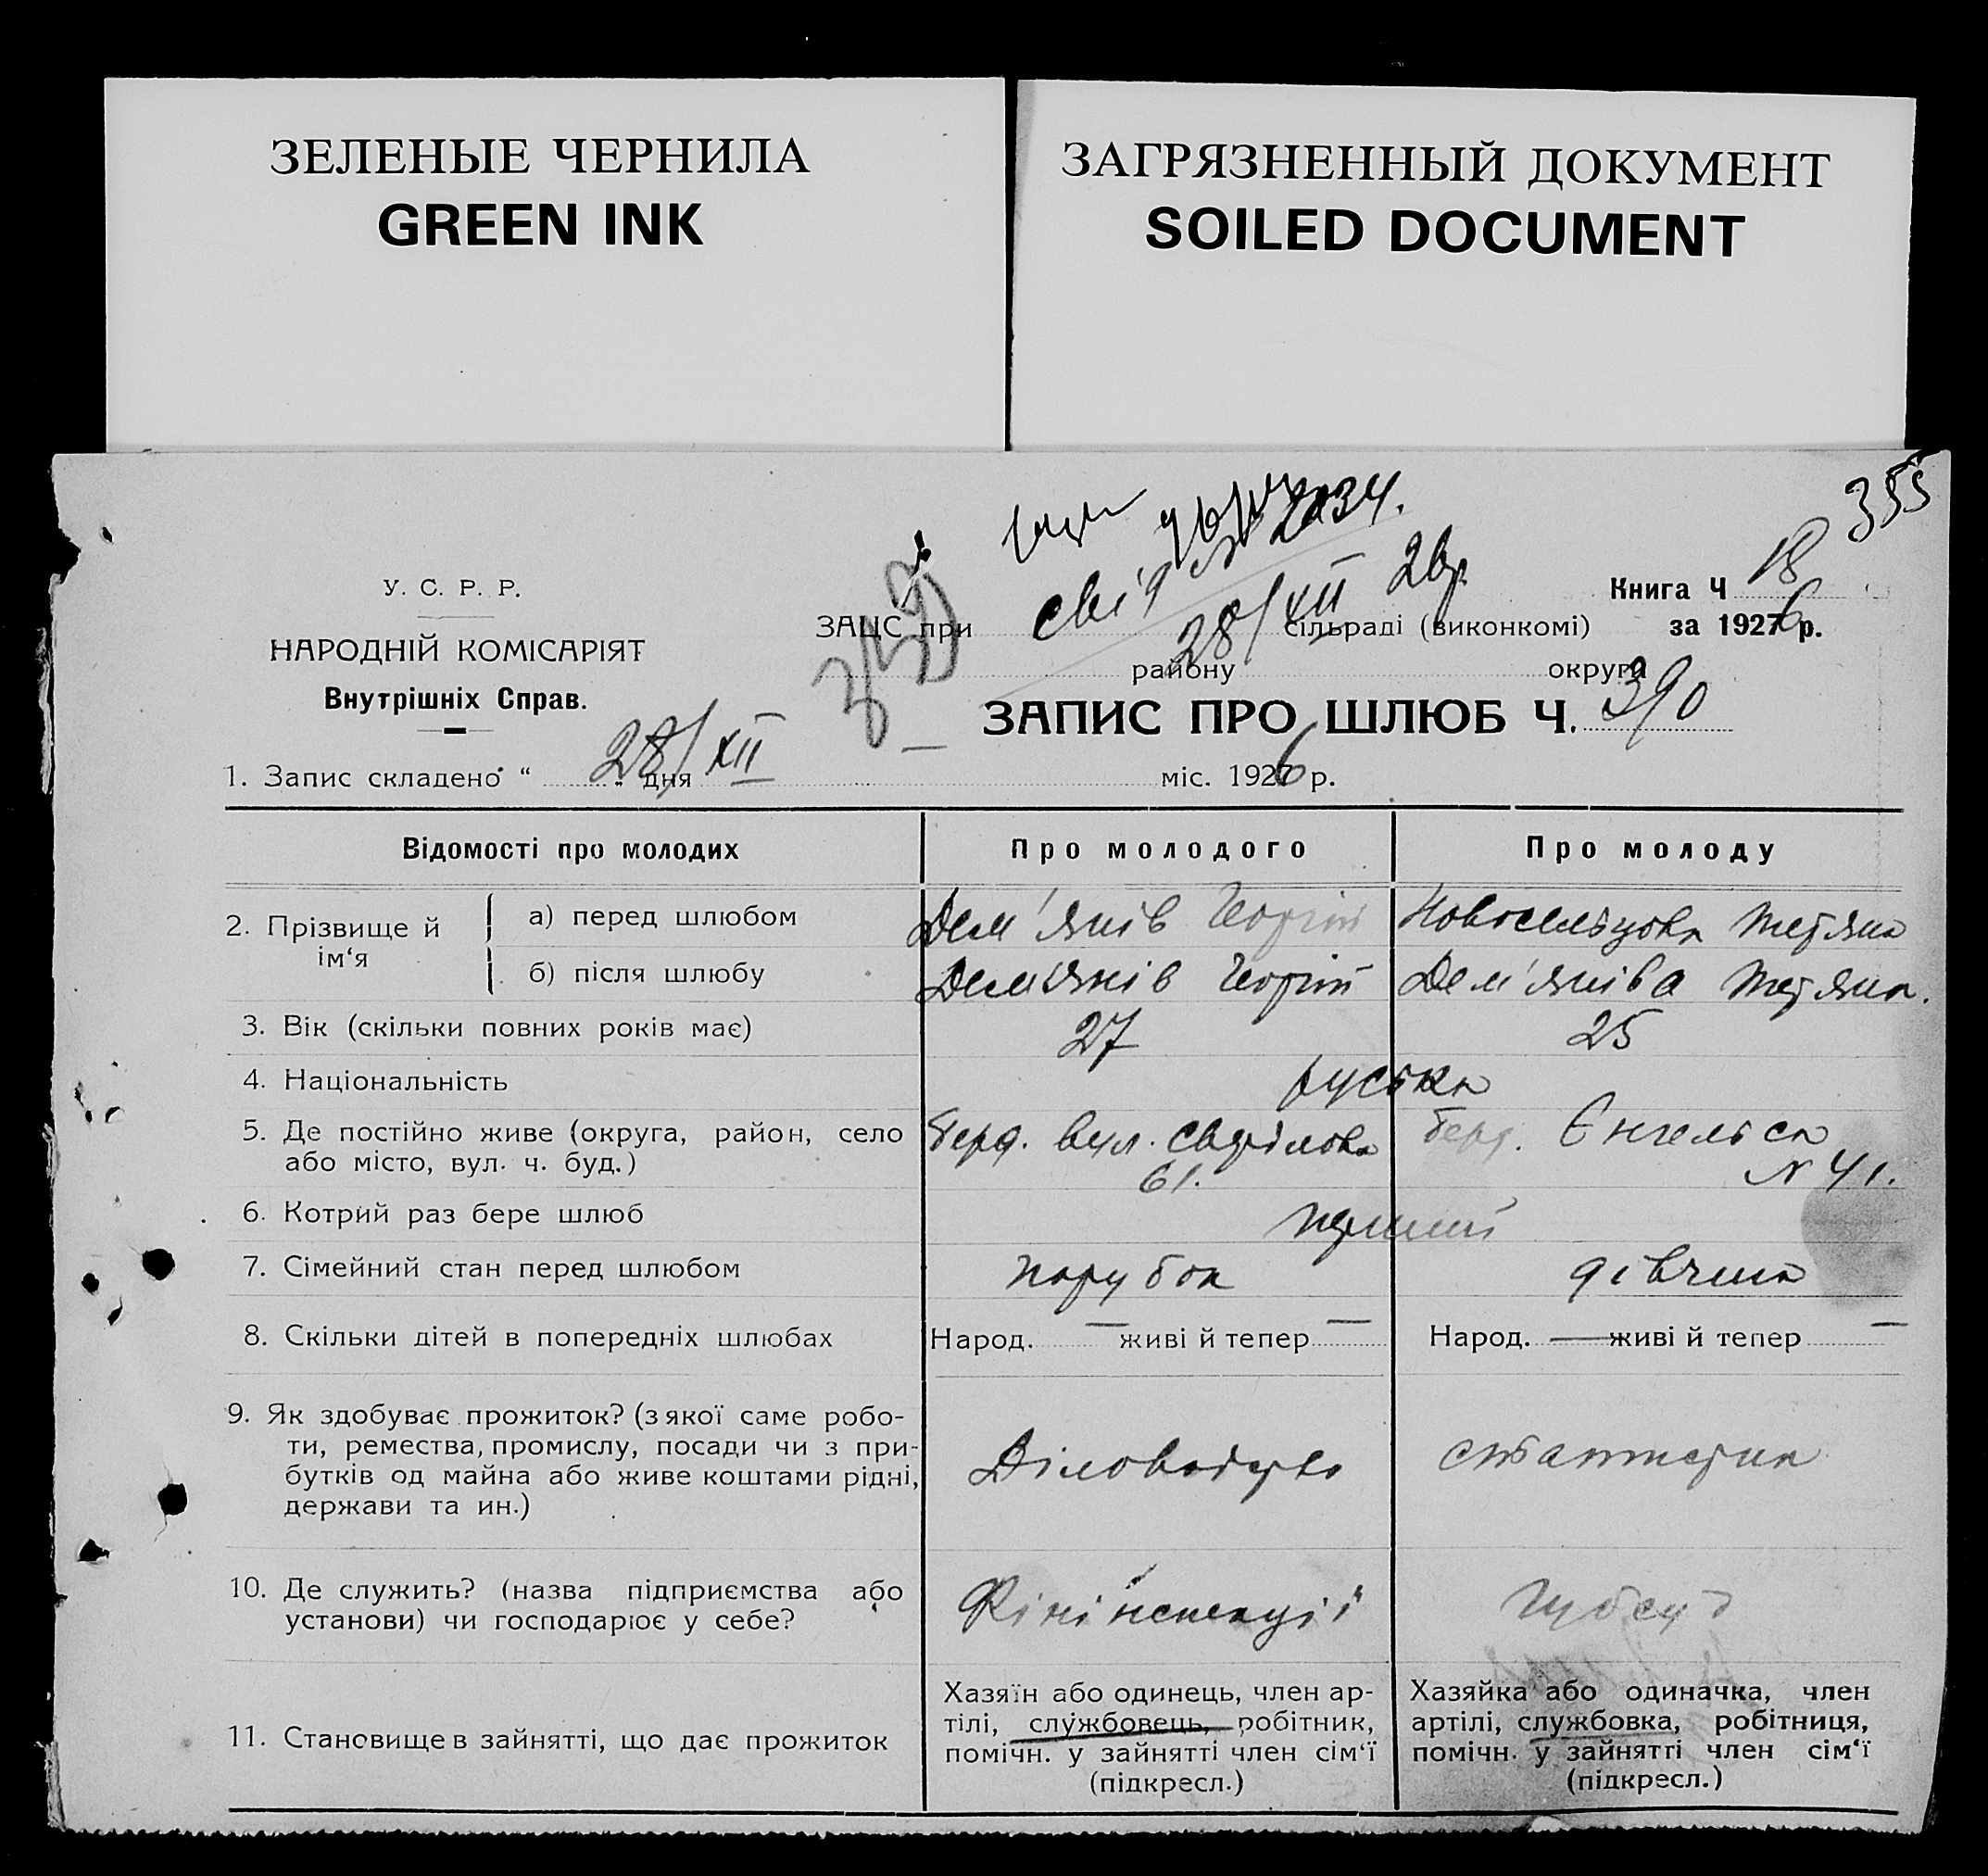 ЗЕЛЕНЫЕ ЧЕРНИЛА
GREEN INK
ЗАГРЯЗНЕННЫЙ ДОКУМЕНТ
SOILED DOCUMENT
355
№ 2034.
28/XII 26р.
У. С. Р. Р.
НАРОДНІЙ КОМІСАРІЯТ
Внутрішніх Справ.
Книга Ч 18
ЗАЦС при сільраді (виконкомі) за 1926 р.
району округи
ЗАПИС ПРО ШЛЮБ Ч. 390
1. Запис складено “ 28/XII „ дня міс. 1926 р.
Відомості про молодих Про молодого Про молоду
2. Прізвище й ім‘я
а) перед шлюбом Дем'янів Георгій Новосельцова Тетяна
б) після шлюбу Дем'янів Георгій Дем'яніва Тетяна.
3. Вік (скільки повних років має) 27 25
4. Національність руська
5. Де постійно живе (округа, район, село Берд. вул. Берд. Енгельса
або місто, вул. ч. буд.) 61. № 41.
6. Котрий раз бере шлюб перший
7. Сімейний стан перед шлюбом парубок дівчина
8. Скільки дітей в попередніх шлюбах Народ. — живі й тепер — Народ. — живі й тепер —
9. Як здобуває прожиток? (з якої саме робо-
ти, ремества, промислу, посади чи з при-
бутків од майна або живе коштами рідні,
держави та ин.)
Діловодство
10. Де служить? (назва підприємства або
установи) чи господарює у себе?
Фінінспекції Губсуд
11. Становище в зайнятті, що дає прожиток
Хазяїн або одинець, член ар-
тілі, службовець, робітник,
помічн. у зайнятті член сім‘ї
(підкресл.)
Хазяйка або одиначка, член
артілі, службовка, робітниця,
помічн. у зайнятті член сім‘ї
(підкресл.)